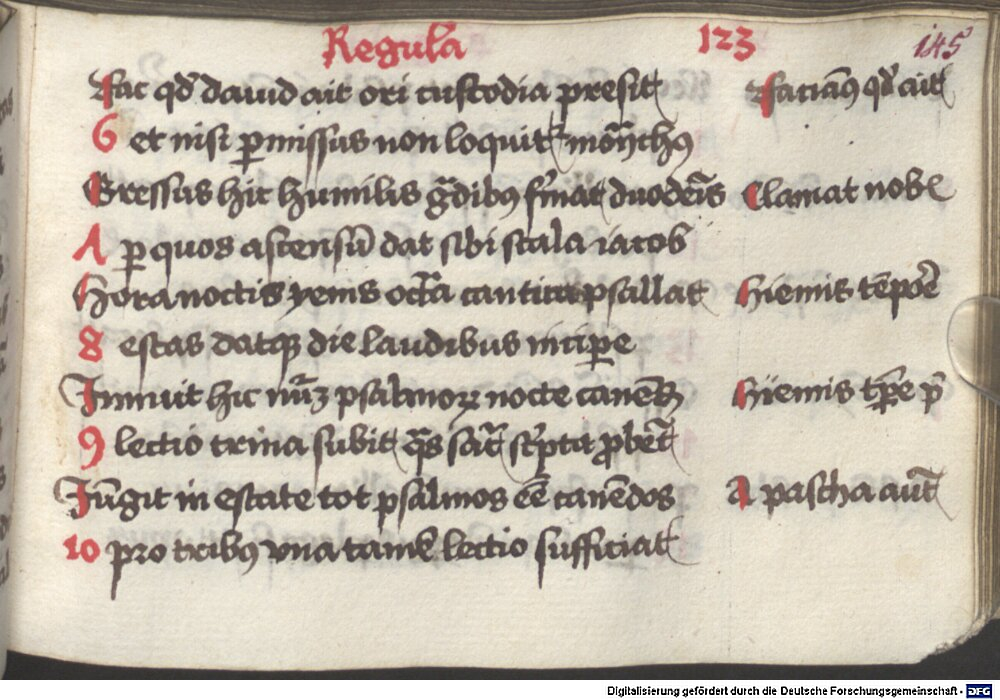 Regula 123 145
Fac qd dauid ait ori custodia presit Faciam9 qd ait
6 et nisi pmissus non loquit monach9
Gressus hic humilis gdib9 fmat duodenis Clamat nob
7 p quos ascensu dat sibi scala iacob
Hora noctis yemis octa cantica psallat Hiemis tepore
8 estas datq die laudibus incipe
Innuit hic nuz psalmoꝝ nocte canend Hiemis tpe p
9 lectio trina subit qs sac scpta pbet
Jungit in estate tot psalmos ee canedos A pascha aut
10 pro trib9 vna tame lectio sufficiat
Digitalisierung gefördert durch die Deutsche Forschungsgemeinschaft - DFG